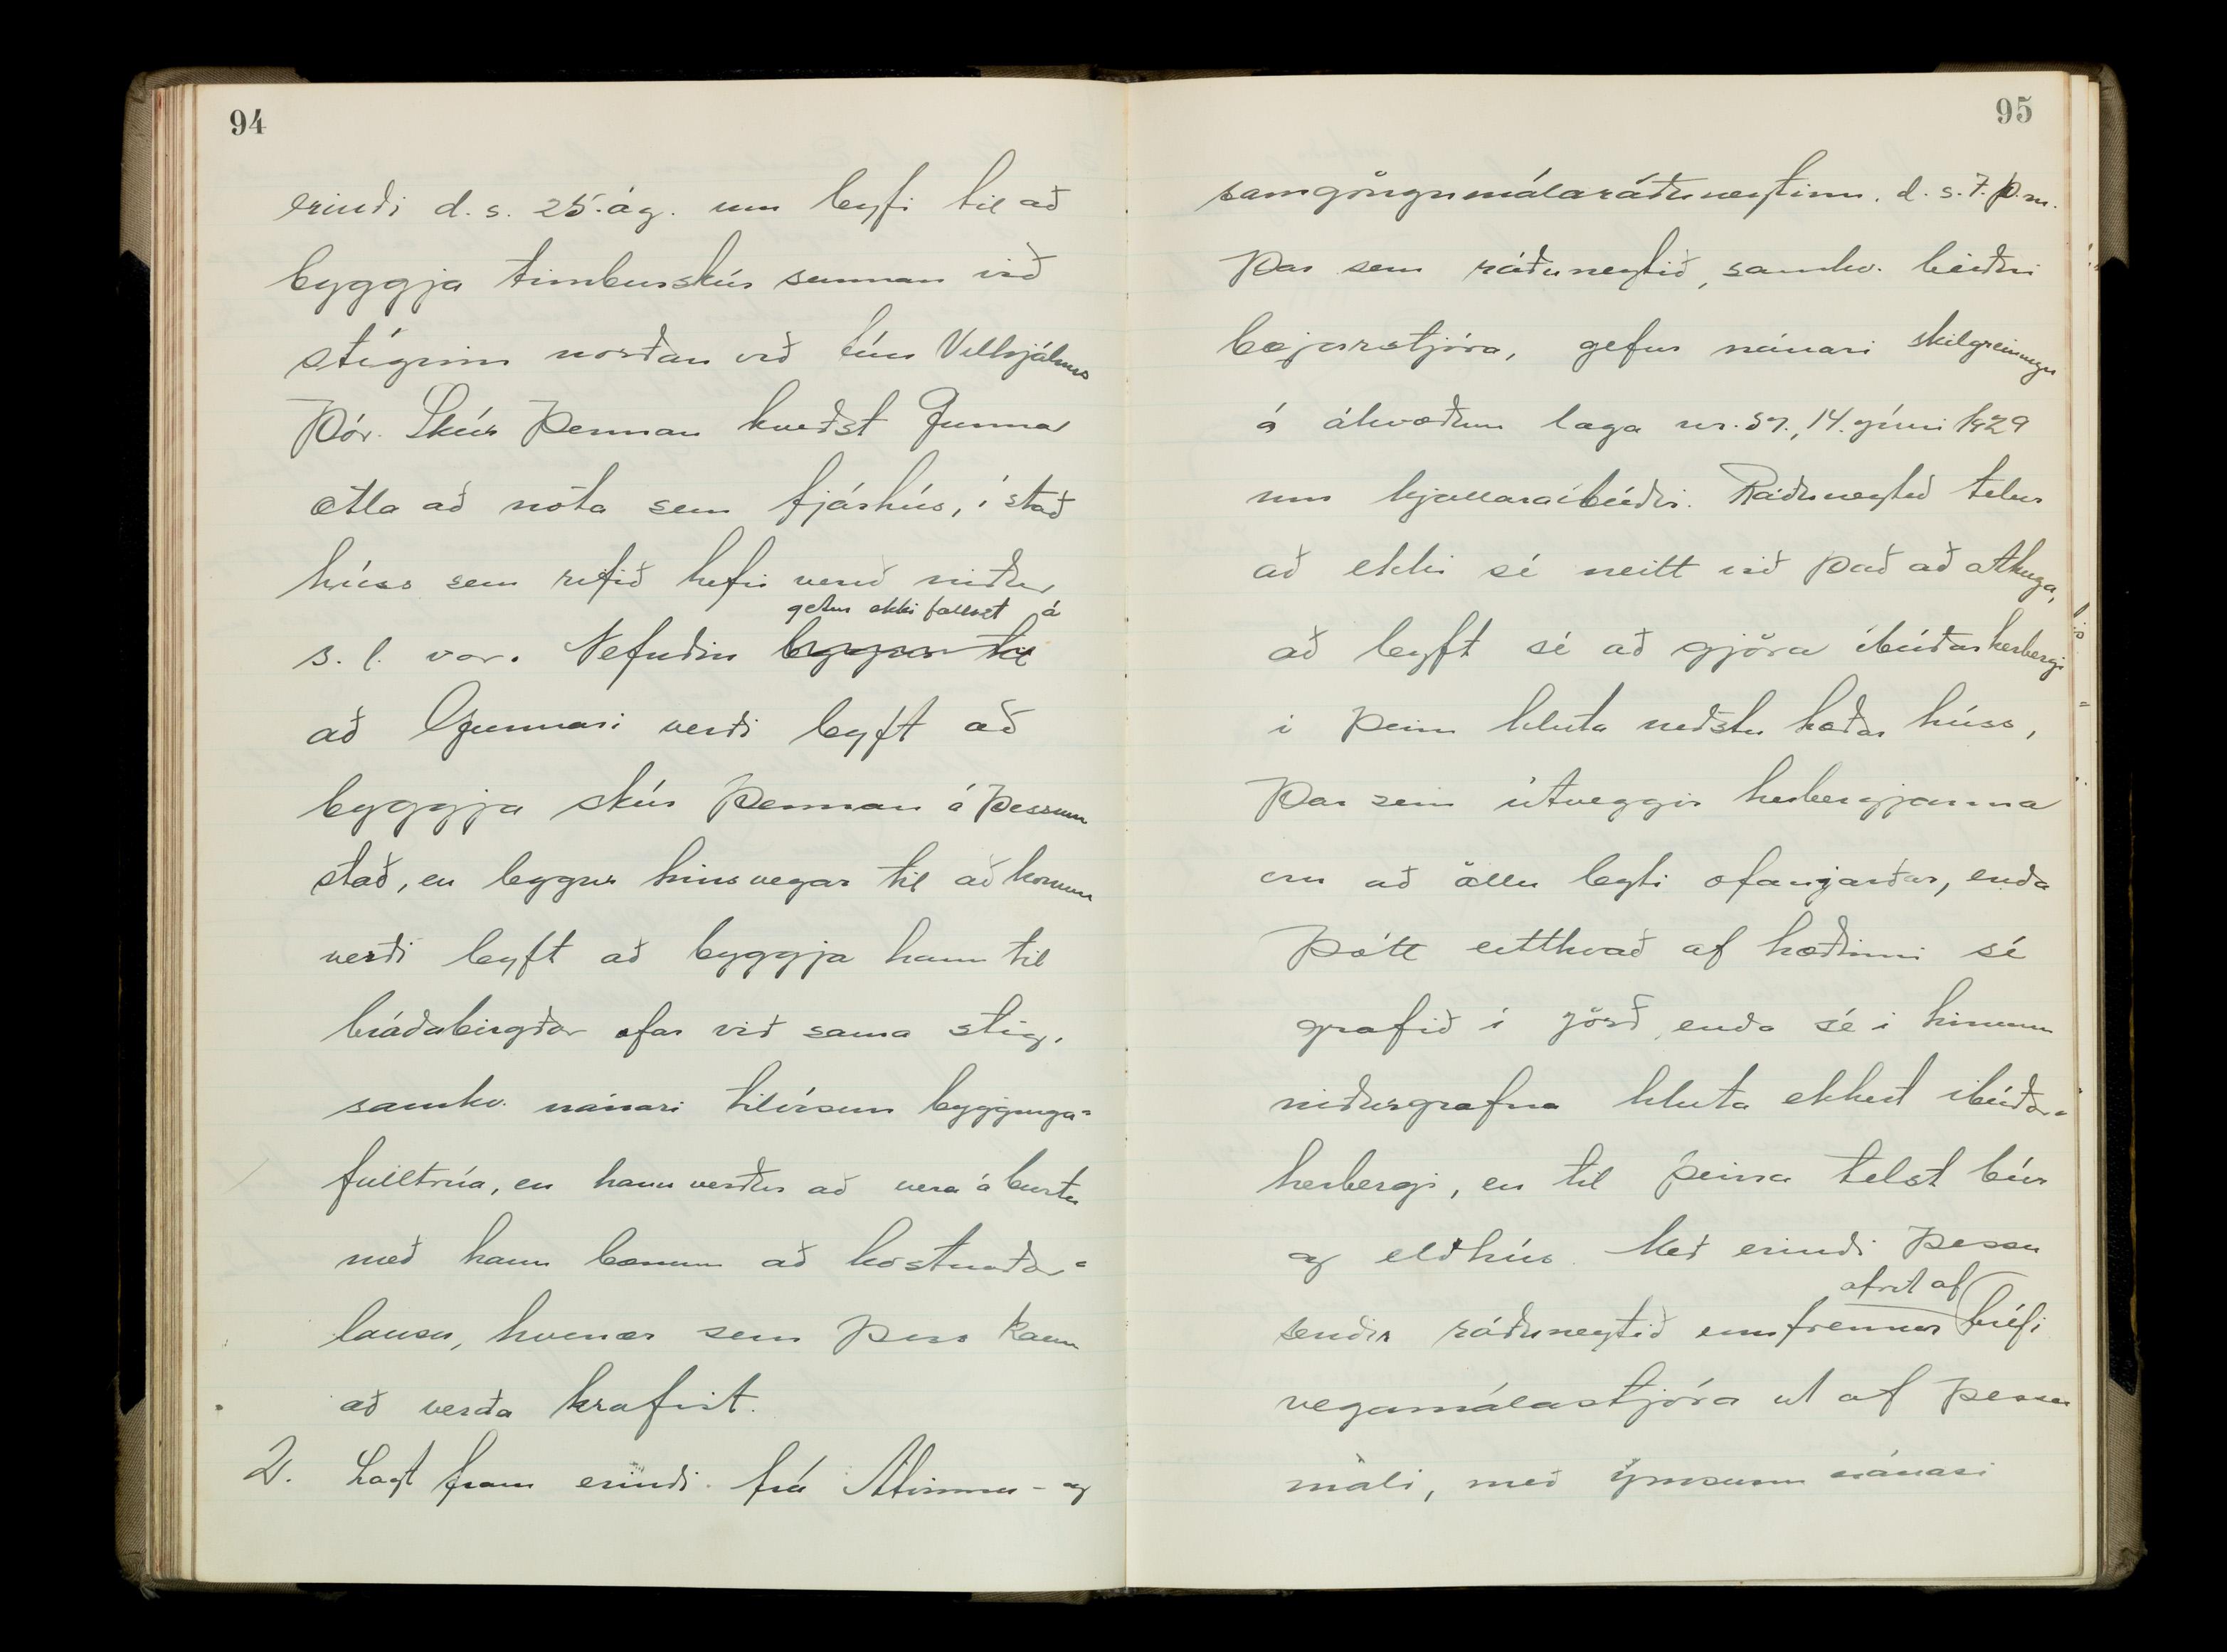 94
erindi d.s. 25. ág. um leyfi til að
byggja timburskúr sunnan við
stíginn norðan við tún Vilhjálms
Þór. Skúr þennan kveðst Gunnar
ætla að nota sem fjárhús, í stað
húss sem rifið hefir verið niður
getur ekki fallist á
s.l. vor. Nefndin leggur til
að Gunnari verði leyft að
byggja skúr þennan á þessum
stað, en leggur hinsvegar til að honum
verði leyft að byggja hann til
bráðabirgðar ofar við sama stíg,
samkv. nánari tilvísun bygginga=
fulltrúa, en hann verður að vera á burtu
með hann bænum að kostnaðar=
lausu, hvenær sem þess kann
að verða krafist.
2. Lagt fram erindi frá Atvinnu- og
95
samgöngumálaráðuneytinu, d.s. 7. þ.m.
Þar sem ráðuneytið, samkv. beiðni
bæjarstjóra, gefur nánari skilgreiningu
á ákvæðum laga nr. 57., 14. júní 1929
um kjallaraíbúðir. Ráðuneytið telur
að ekki sé neitt við það að athuga,
að leyft sé að gjöra íbúðarherbergi
í þeim hluta neðstu hæðar húss,
þar sem útveggir herbergjanna
eru að öllu leyti ofanjarðar, enda
þótt eitthvað af hæðinni sé
grafið í jörð, enda sé í hinum
niðurgrafna hluta ekkert íbúðar=
herbergi, en til þeirra telst búr
og eldhús. Með erindi þessu
afrit af
sendir ráðuneytið ennfremur bréfi
vegamálastjóra út af þessu
máli, með ýmsum nánari